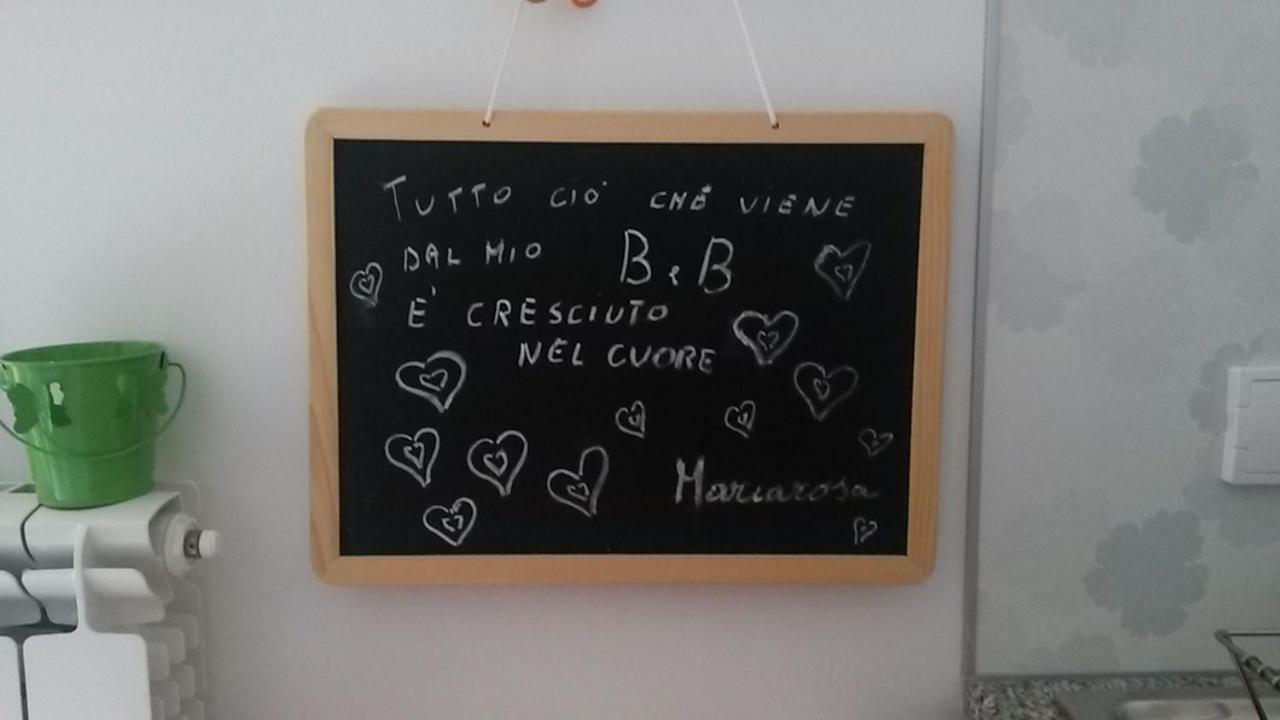 TUTTO CIO' CHÉ VIENE
DAL MIO B e B
E' CRESCIUTO
NEL CUORE
Mariarosa